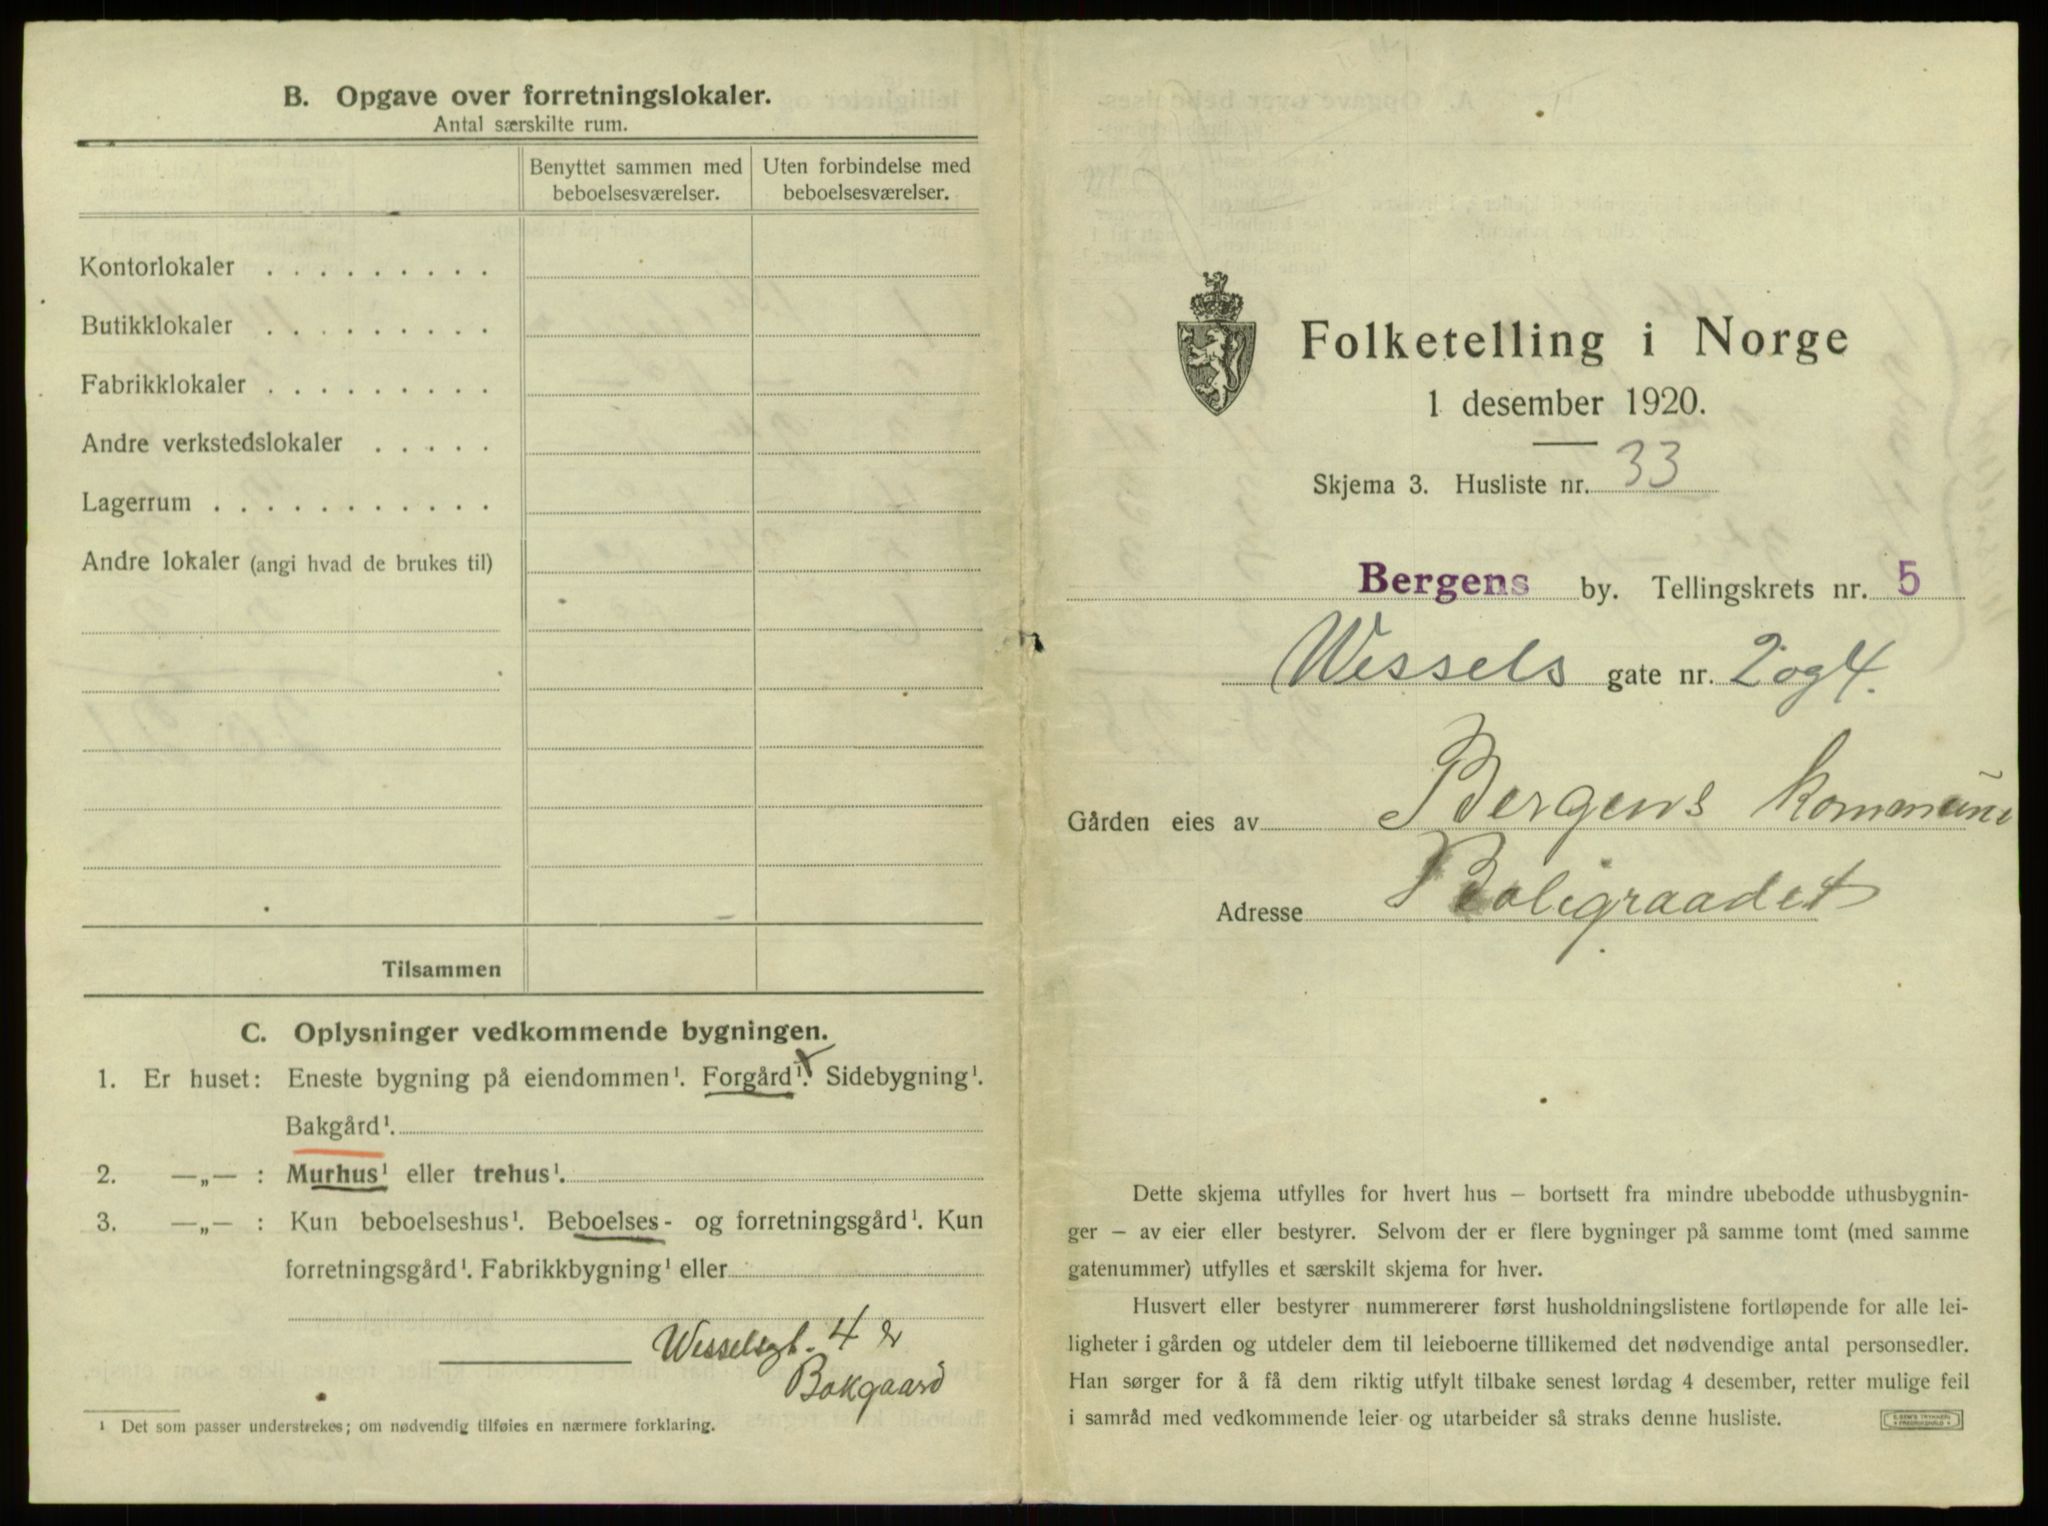 B. Opgave over forretningslokaler.
Antal særskilte rum.
Benyttet sammen med beboelsesværelser.
Uten forbindelse med beboelsesværelser.
Kontorlokaler . . . . . . . . .
Butikklokaler . . . . . . . . .
Fabrikklokaler . . . . . . . . .
Andre verkstedslokaler . . . . .
Lagerrum . . . . . . . . . . .
Andre lokaler (angi hvad de brukes til)
Tilsammen
C. Oplysninger vedkommende bygningen.
1. Er huset: Eneste bygning på eiendommen¹. Forgård¹. x Sidebygning¹.
Bakgård¹.
2. —„— : Murhus¹ eller trehus¹.
3. —„— : Kun beboelseshus¹. Beboelses- og forretningsgård¹. Kun
forretningsgård¹. Fabrikkbygning¹ eller
Wesselsgt. 4 er
Bakgaard
¹ Det som passer understrekes; om nødvendig tilføies en nærmere forklaring.
Folketelling i Norge
1 desember 1920.
Skjema 3. Husliste nr. 33
Bergens by. Tellingskrets nr. 5
Wessels gate nr. 2 og 4.
Gården eies av Bergens kommune
Adresse Boligraadet
Dette skjema utfylles for hvert hus — bortsett fra mindre ubebodde uthusbygnin-
ger — av eier eller bestyrer. Selvom der er flere bygninger på samme tomt (med samme
gatenummer) utfylles et særskilt skjema for hver.
Husvert eller bestyrer nummererer først husholdningslistene fortløpende for alle lei-
ligheter i gården og utdeler dem til leieboerne tillikemed det nødvendige antal personsedler.
Han sørger for å få dem riktig utfylt tilbake senest lørdag 4 desember, retter mulige feil
i samråd med vedkommende leier og utarbeider så straks denne husliste.